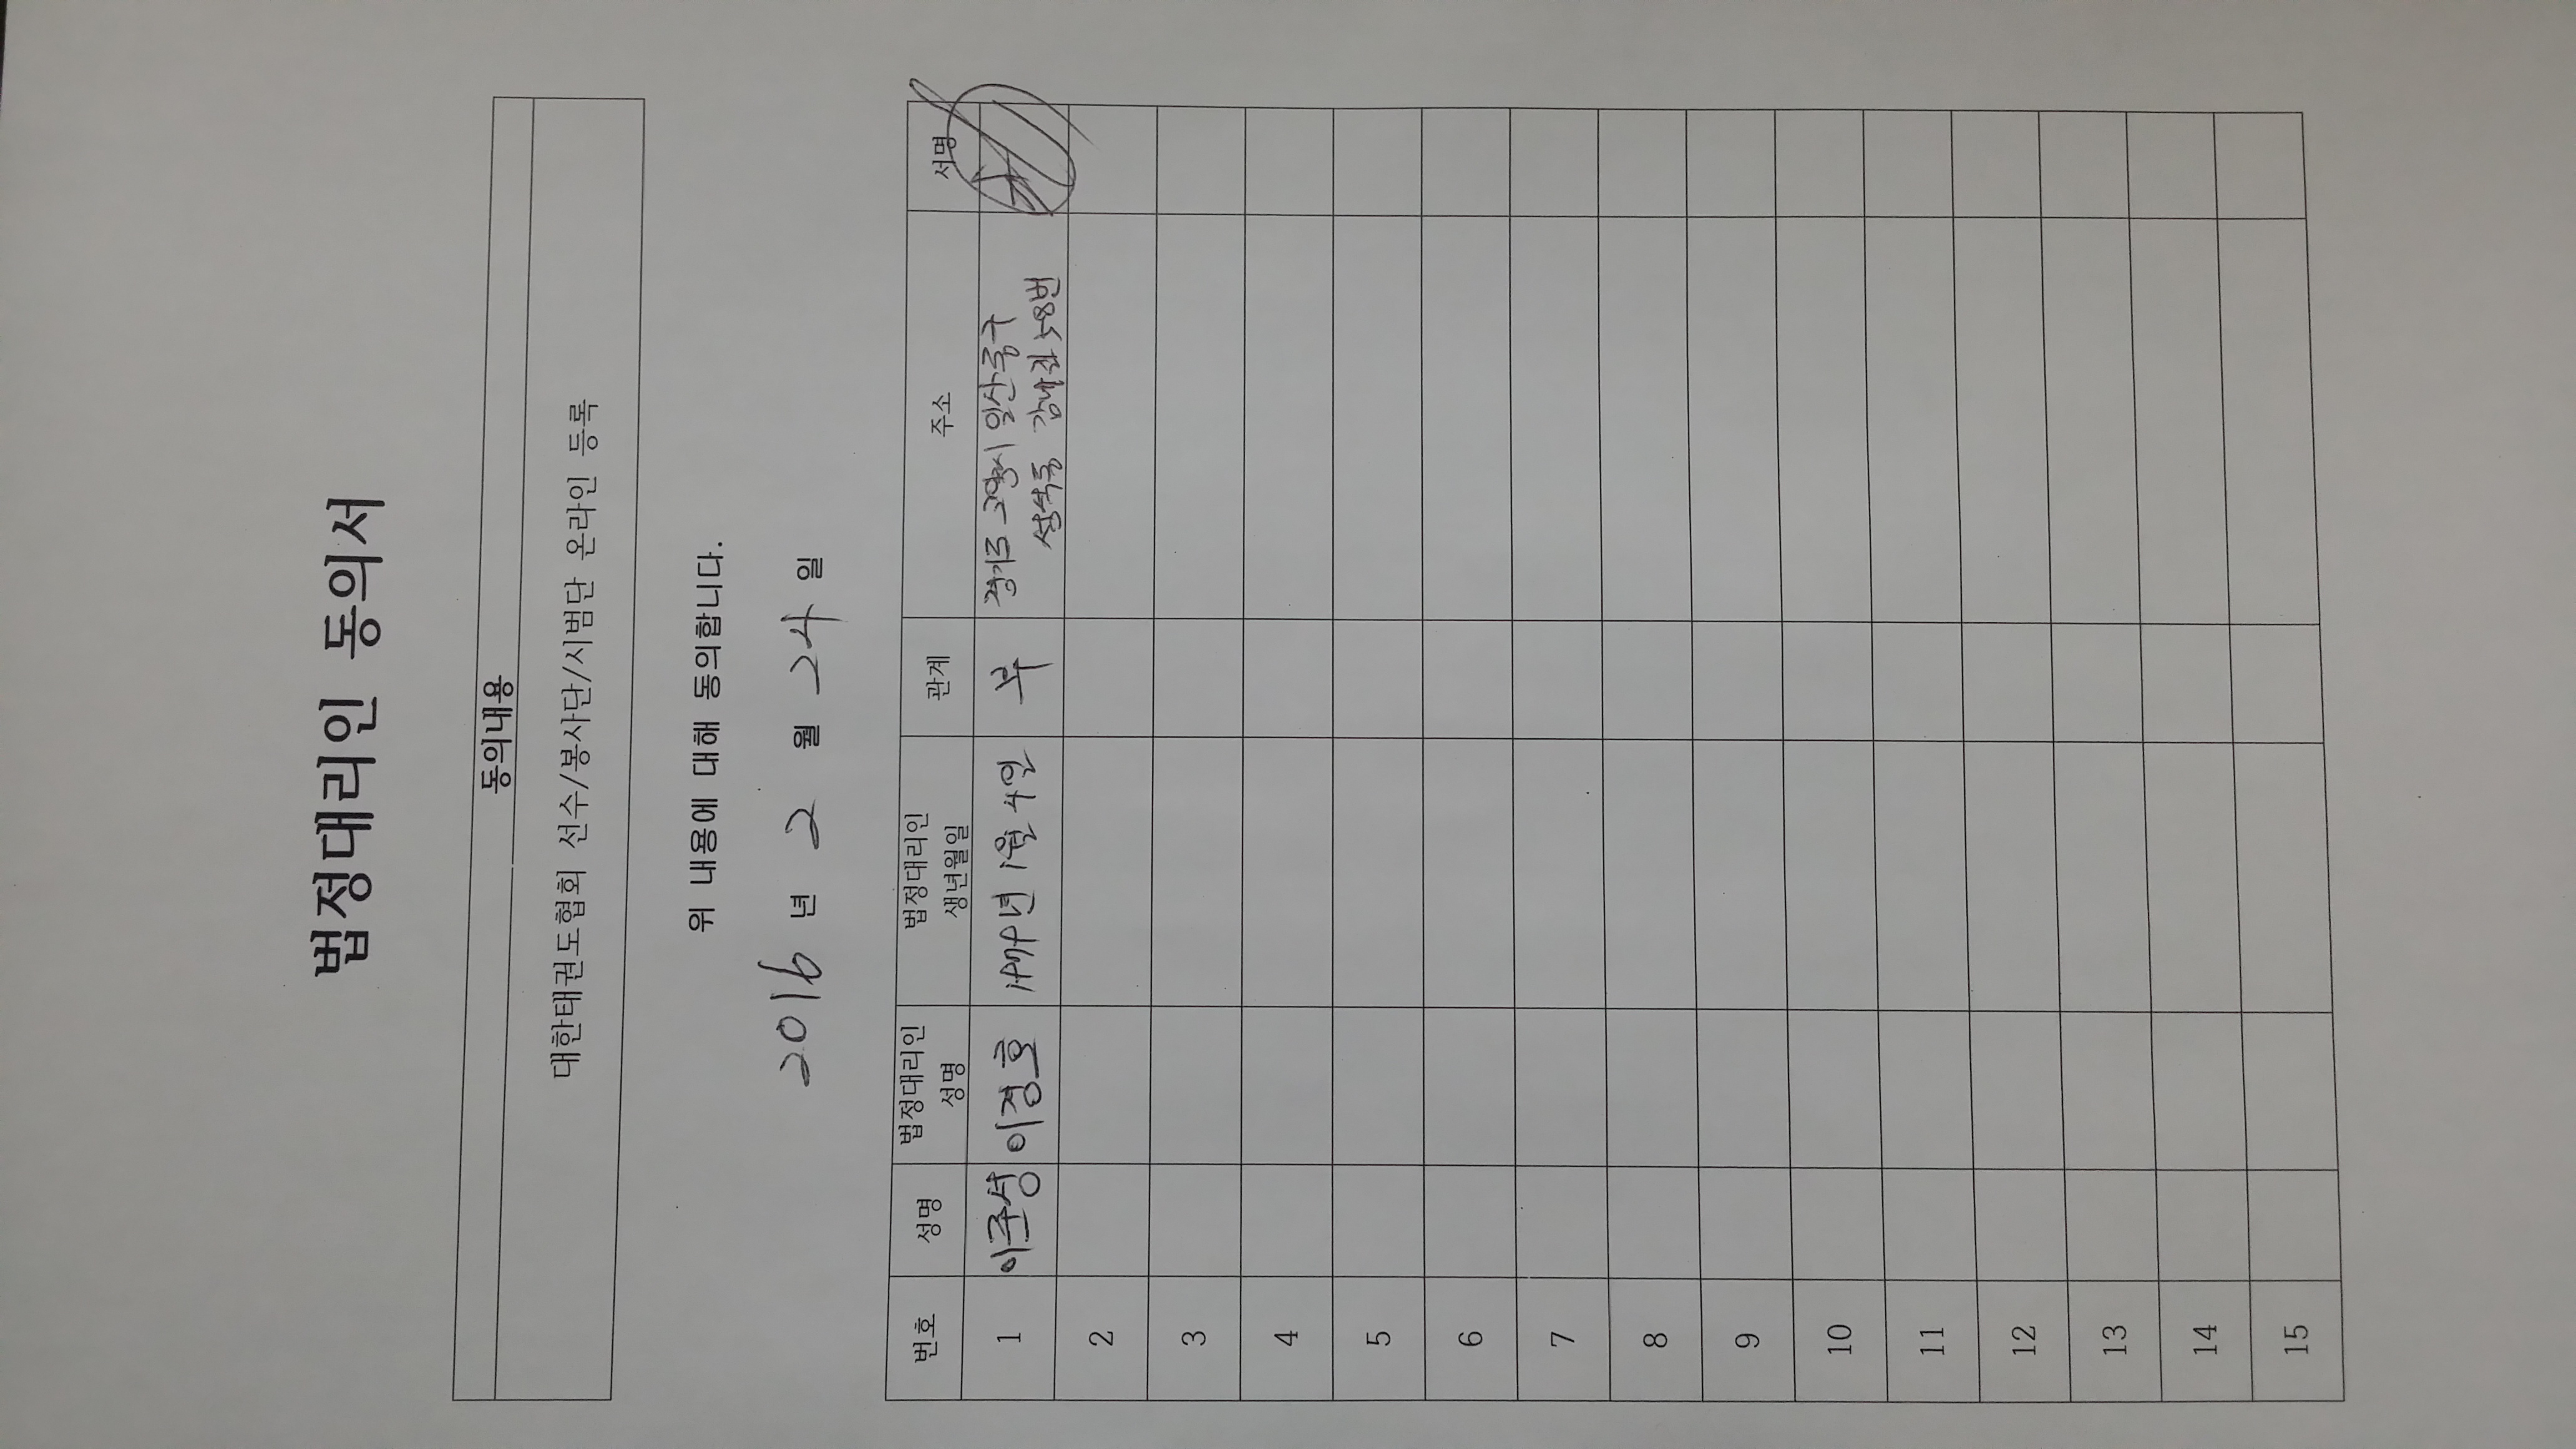 법정대리인 동의서
동의내용
대한태권도협회 선수/봉사단/시범단 온라인 등록
위 내용에 대해 동의합니다.
2016 년 2 월 24 일
번호 성명 법정대리인 성명 법정대리인 생년월일 관계 주소 서명
1 이주성 이경호 1979년 1월 4일 부 경기도 고양시 일산동구
58번
2
3
4
5
6
7
8
9
10
11
12
13
14
15